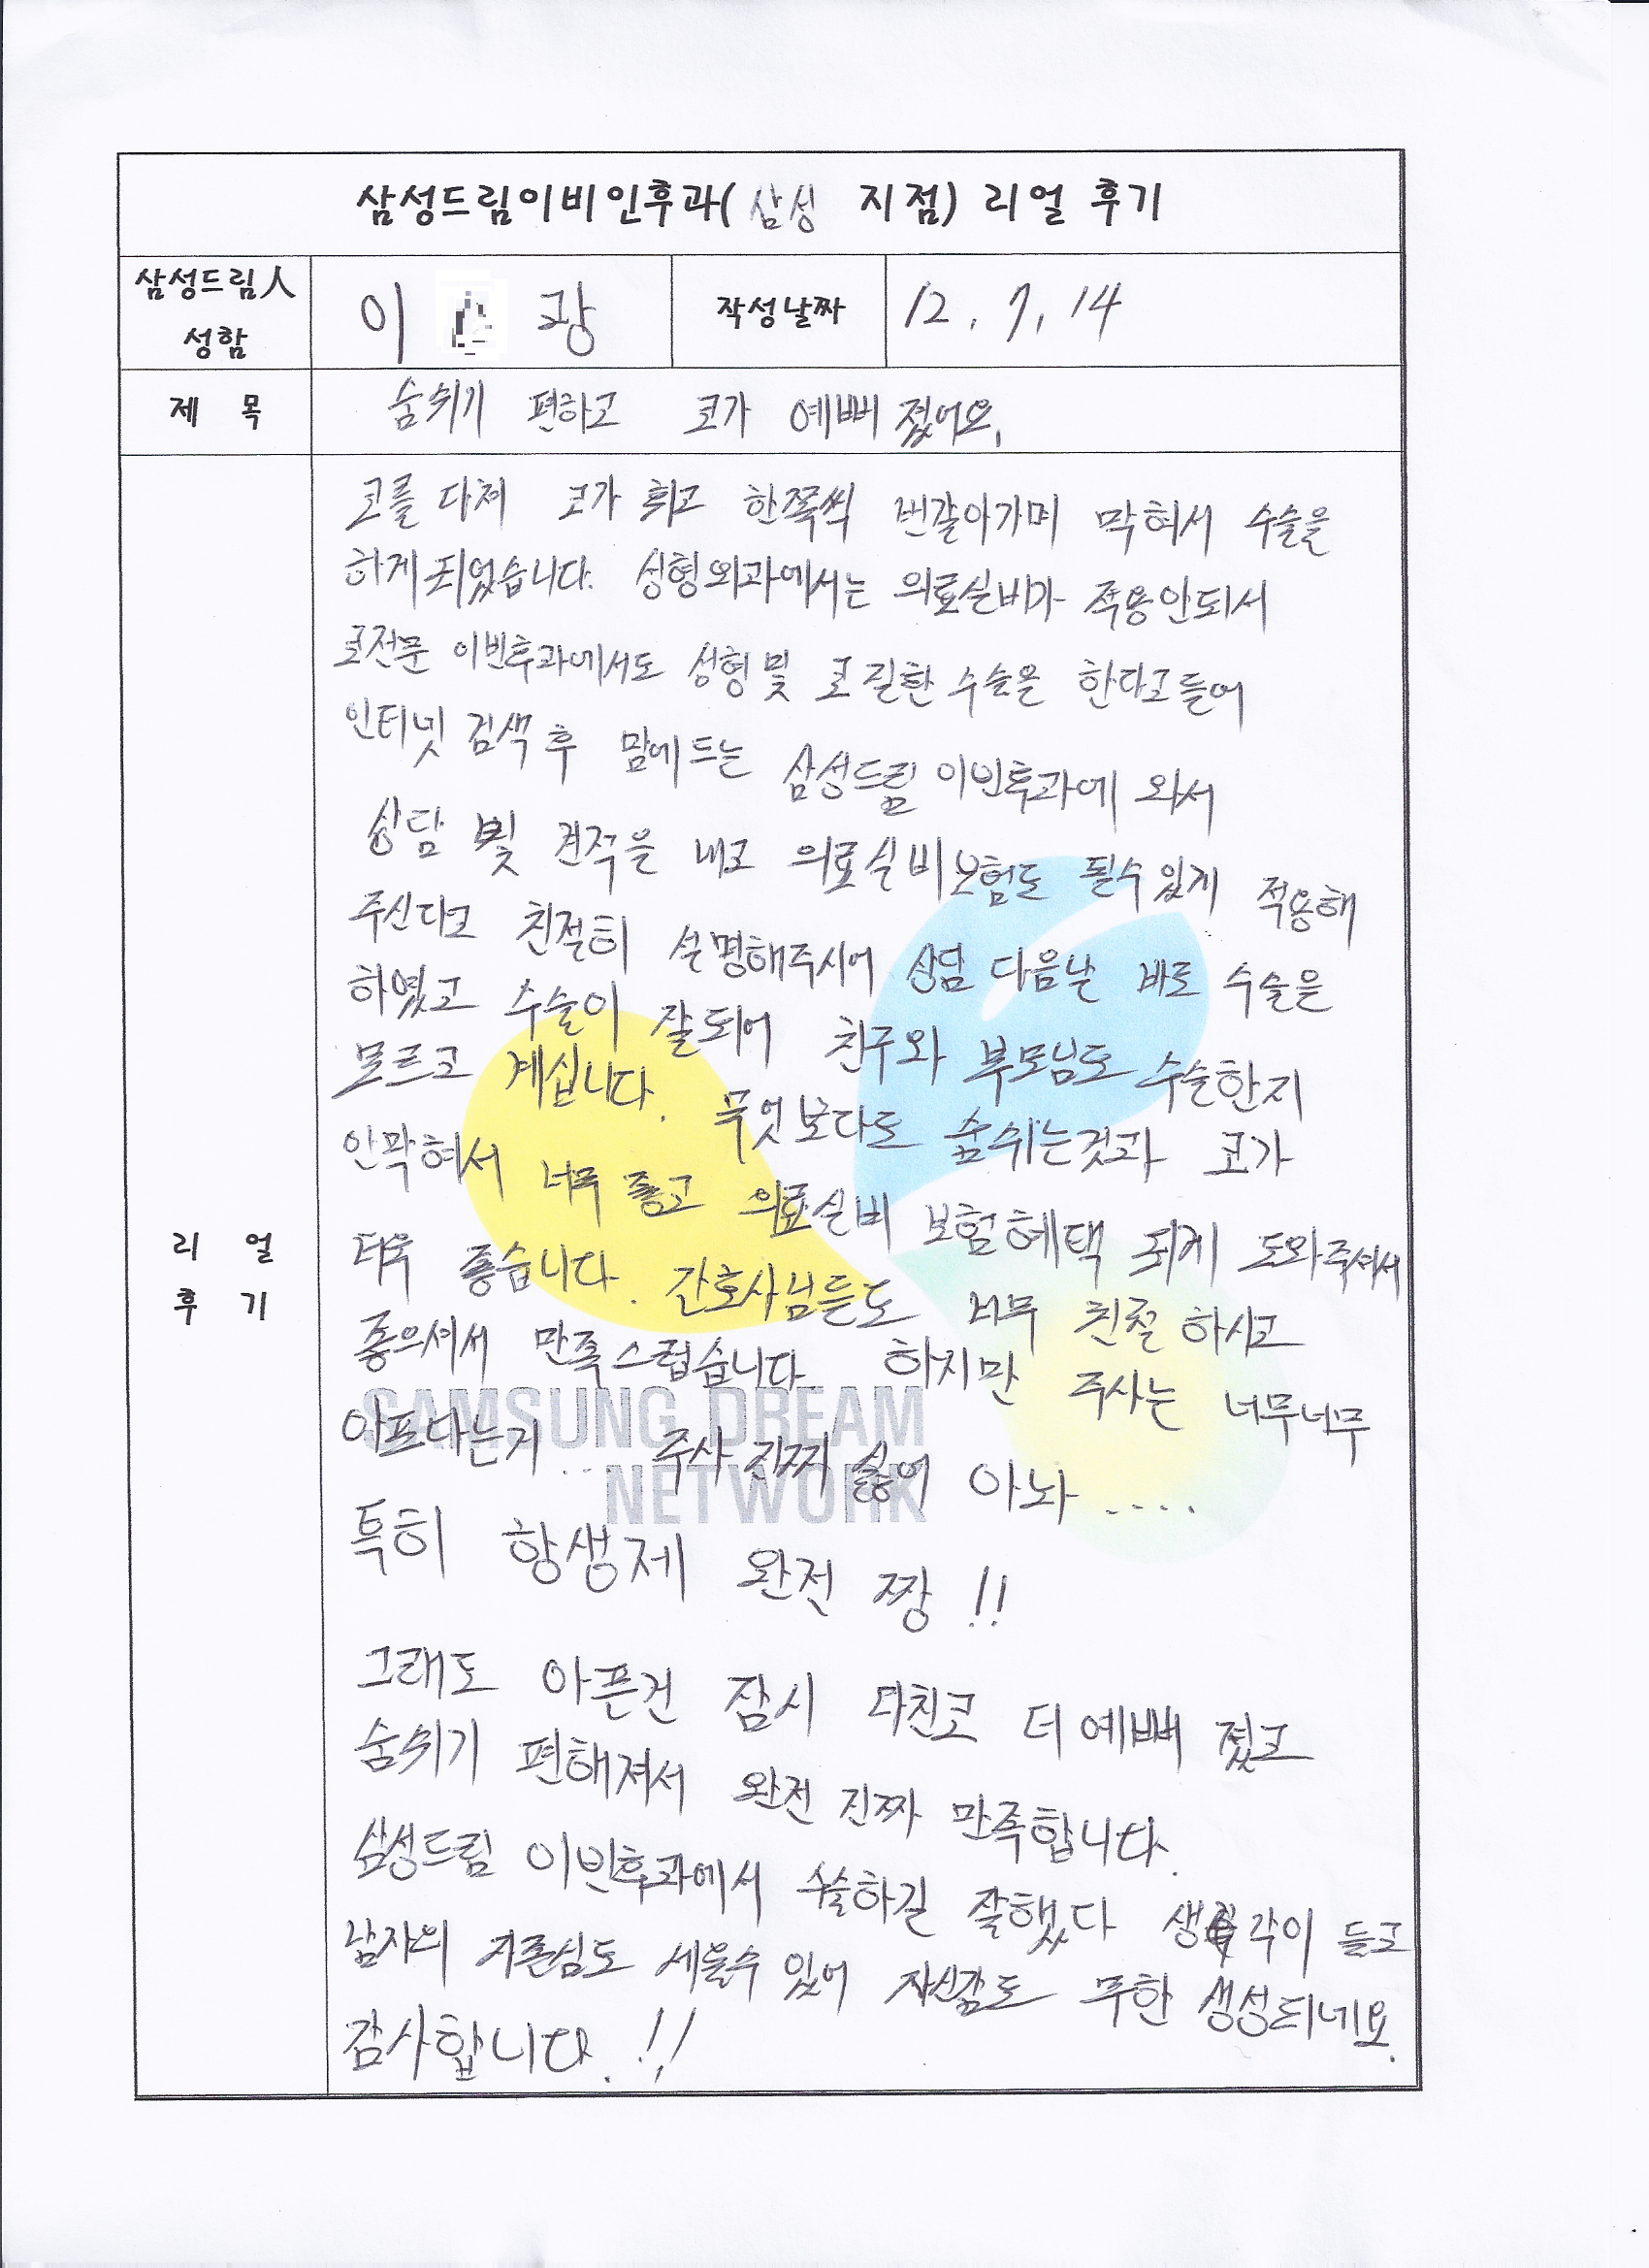 삼성드림이비인후과(삼성 지점) 리얼 후기
삼성드림人 성함
이 광
작성날짜
12. 7. 14
제 목
숨쉬기 편하고 코가 예뻐졌어요.
리 얼 후 기
코를 다쳐 코가 휘고 한쪽씩 번갈아가며 막혀서 수술을
하게 되었습니다. 성형외과에서는 의료실비가 적용안되서
코전문 이빈후과에서도 성형 및 코 질환 수술을 한다고 들어
인터넷 검색 후 맘에 드는 삼성드림 이빈후과에 와서
상담 및 견적을 내고 의료실비보험도 될수있게 적용해
주신다고 친절히 설명해주시어 상담 다음날 바로 수술을
하였고 수술이 잘되어 친구와 부모님도 수술한지
모르고 계십니다. 무엇보다도 숨쉬는것과 코가
안막혀서 너무 좋고 의료실비 보험혜택 되게 도와주셔서
더욱 좋습니다. 간호사님들도 너무 친절 하시고
좋으셔서 만족스럽습니다. 하지만 주사는 너무너무
아프다는거.... 주사 진짜 싫어 아놔 ....
특히 항생제 완전 짱 !!
그래도 아픈건 잠시 다친코 더 예뻐 졌고
숨쉬기 편해져서 완전 진짜 만족합니다.
삼성드림 이빈후과에서 수술하길 잘했다 생각이 들고
남자의 자존심도 세울수 있어 자신감도 무한 생성되네요.
감사합니다. !!
SAMSUNG DREAM
NETWORK